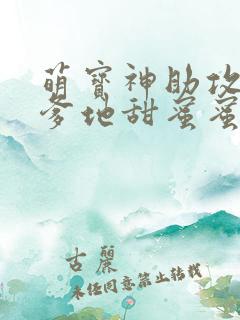 萌宝神助攻
爹地甜蜜蜜
古麗
未经同意禁止转载